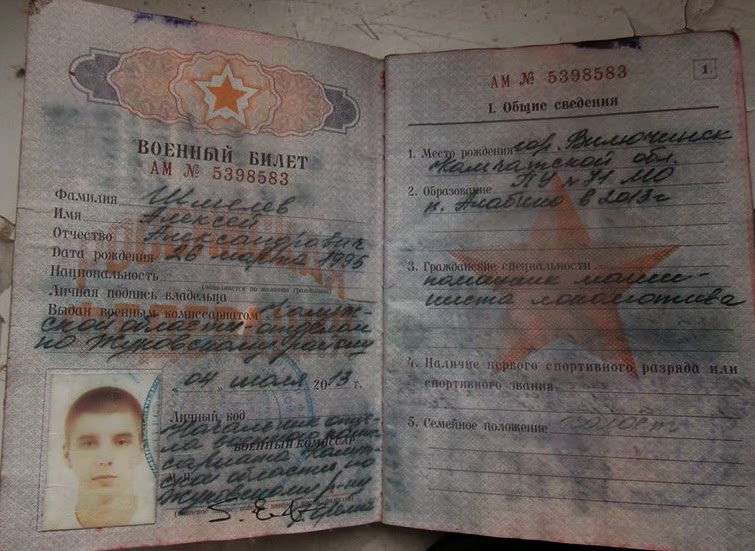 ВОЕННЫЙ БИЛЕТ
АМ № 5398583
Фамилия Шмелев
Имя Алексей
Отчество Александрович
Дата рождения 26 марта 1995
Национальность
(заполняется по желанию гражданина)
Личная подпись владельца
Выдан военным комиссариатом Калуж-
ской области - отделом
по Жуковскому району
„04„ июля 2013 г.
Личный код
Начальник отде-
ла
военный комиссар
ской области по
Жуковскому р-ну
АМ № 5398583
1
I. Общие сведения
1. Место рождения гор. Вилючинск
Камчатской обл.
2. Образование ПУ № 71 МО
п. Алабино в 2013 г
3. Гражданские специальности
помощник маши-
ниста локомотива
4. Наличие первого спортивного разряда или
спортивного звания
5. Семейное положение холост